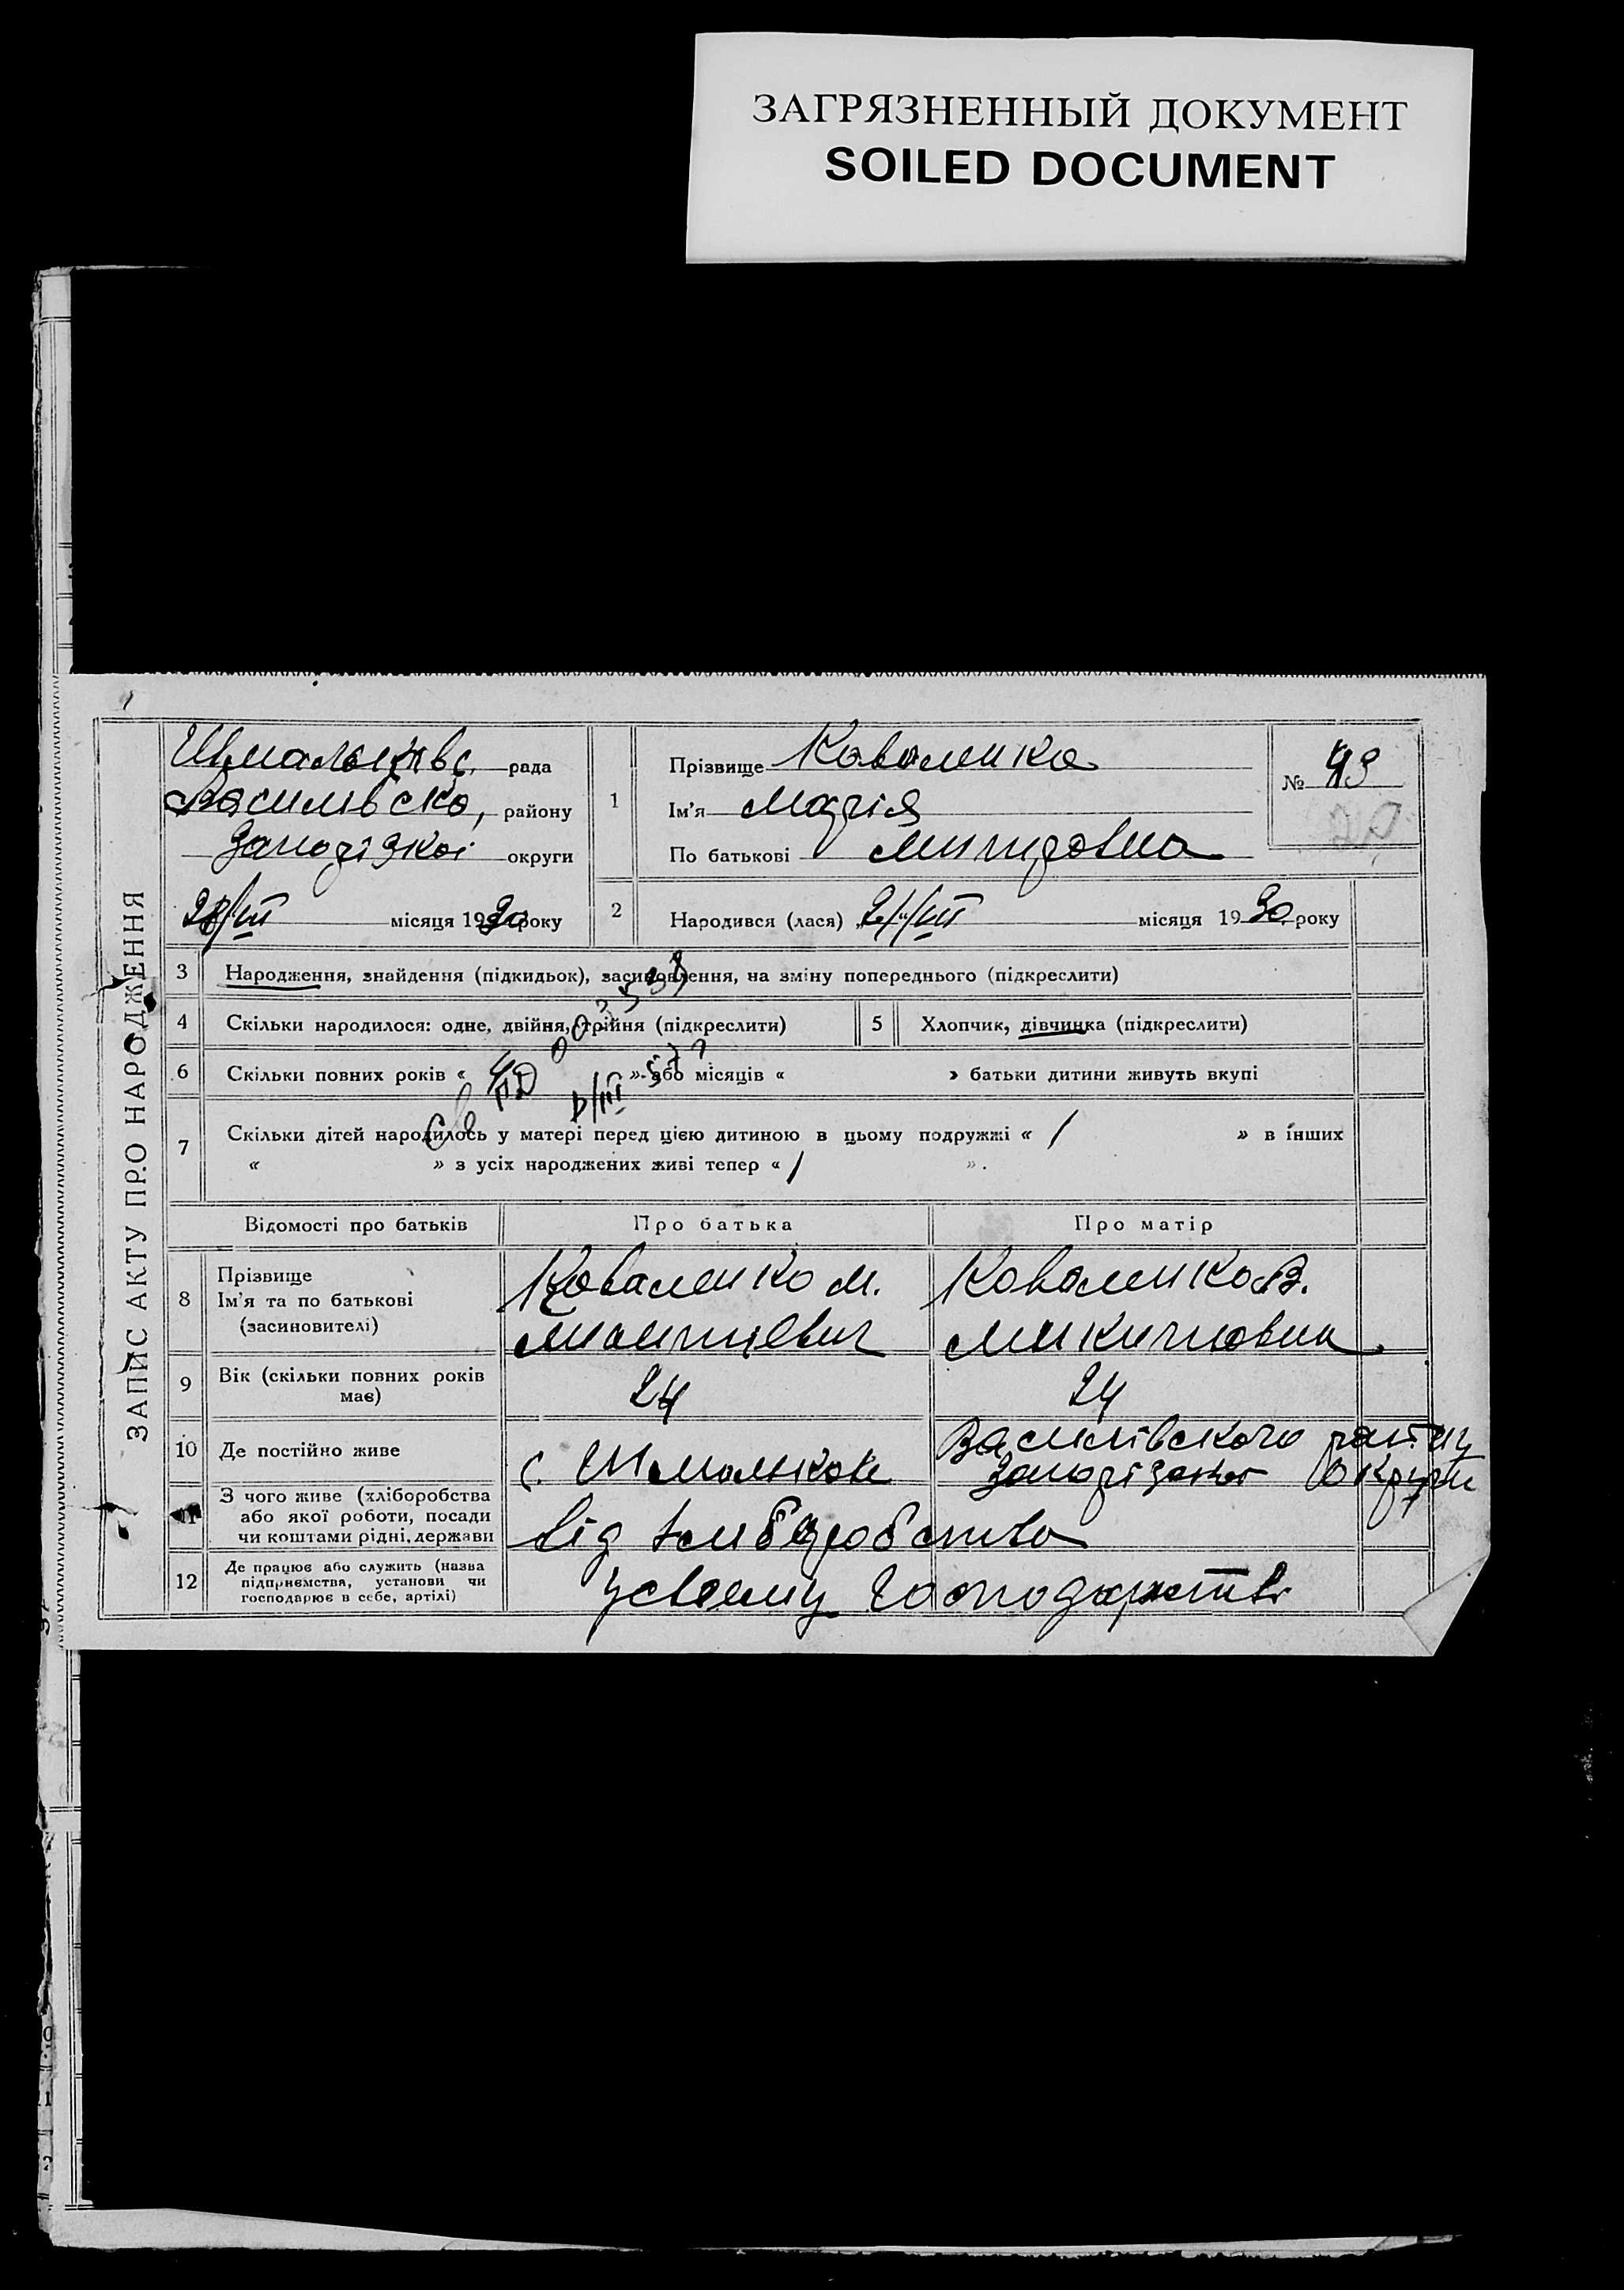 ЗАГРЯЗНЕННЫЙ ДОКУМЕНТ
SOILED DOCUMENT
ЗАПИС АКТУ ПРО НАРОДЖЕННЯ
рада
району
округи
28/III місяця 1930 року
1
Прізвище Коваленко
Ім'я Марія
По батькові
№ 49
2
Народився (лася) місяця 1930 року
3 Народження, знайдення (підкидьок), засиновлення, на зміну попереднього (підкреслити)
4 Скільки народилося: одне, двійня, трійня (підкреслити)
5 Хлопчик, дівчинка (підкреслити)
6 Скільки повних років « » або місяців « » батьки дитини живуть вкупі
7 Скільки дітей народилось у матері перед цією дитиною в цьому подружжі « 1 » в інших
« » з усіх народжених живі тепер « 1 ».
Відомості про батьків Про батька Про матір
8 Прізвище
Ім'я та по батькові
(засиновителі)
Коваленко М.
Коваленко В.
Микитовна
9 Вік (скільки повних років
має)
24 24
10 Де постійно живе
с.
Василівского
округи
11 З чого живе (хліборобства
або якої роботи, посади
чи коштами рідні, держави
від хліборобства
12 Де працює або служить (назва
підприємства, установи чи
господарює в себе, артілі)
усвоему господарстві